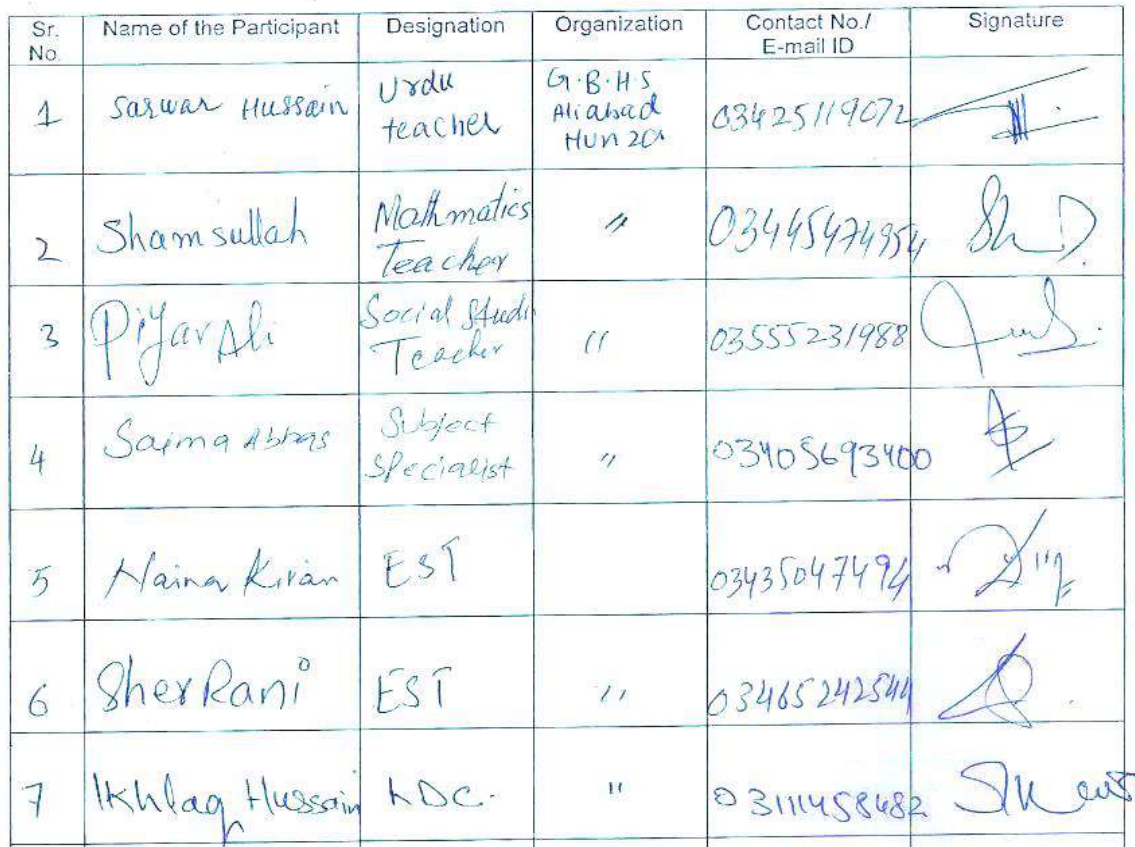 Sr. No. Name of the Participant Designation Organization Contact No./ E-mail ID Signature
1 Sarwar Hussain Urdu teacher G.B.H.S Aliabad Hunza 03425119072
2 Shamsullah Mathmatics Teacher " 03445474954
3 Piyar Ali Social Studi Teacher " 03555231988
4 Saima Abbas Subject Specialist " 03405693400
5 Naina Kiran EST 03435047494
6 Sher Rani EST " 03465242544
7 Ikhlaq Hussain LDC. " 03111458482